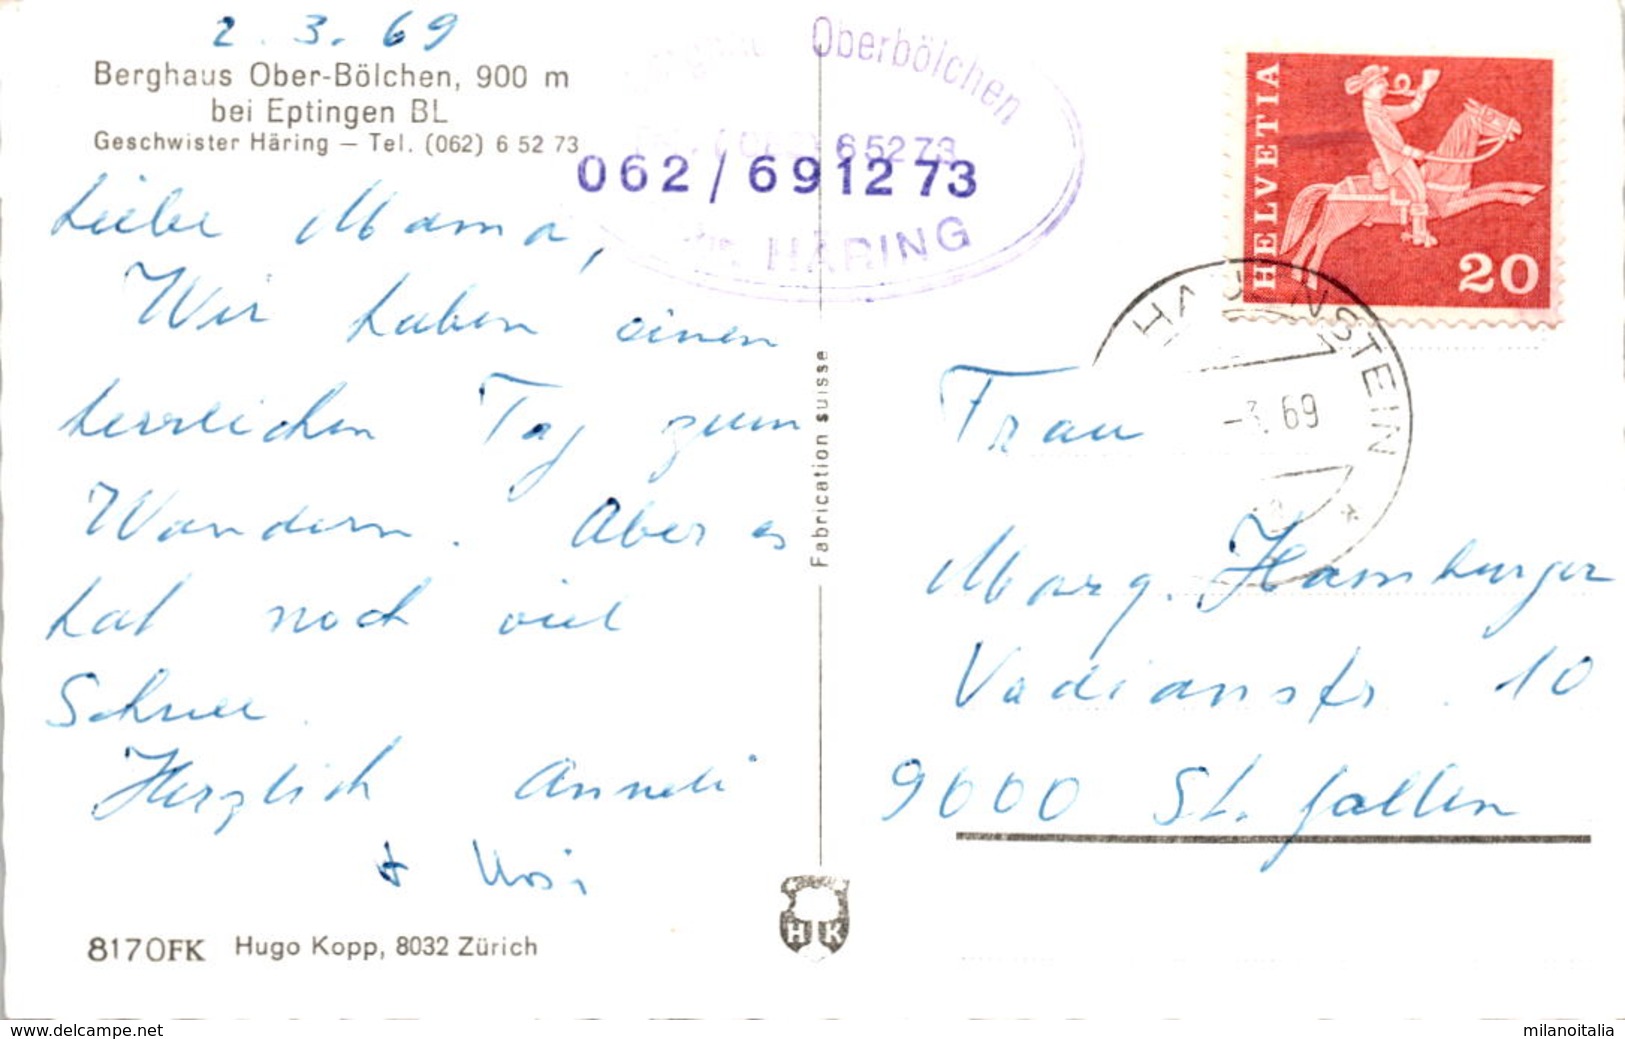 2. 3. 69
Berghaus Ober-Bölchen, 900 m
bei Eptingen BL
Geschwister Häring – Tel. (062) 6 52 73
Oberbölchen
(062) 6 52 73
062 / 69 12 73
HÄRING
HELVETIA
20
HAUENSTEIN
-3. 69
Liebe Mama,
Wir haben einen
herrlichen Tag zum
Wandern. Aber es
hat noch viel
Schnee.
Herzlich Anneli
+ Ursi
Fabrication suisse
Frau
Marg. Hamburger
Vadianstr. 10
9000 St. Gallen
8170FK Hugo Kopp, 8032 Zürich
H K
www.delcampe.net
milanoitalia